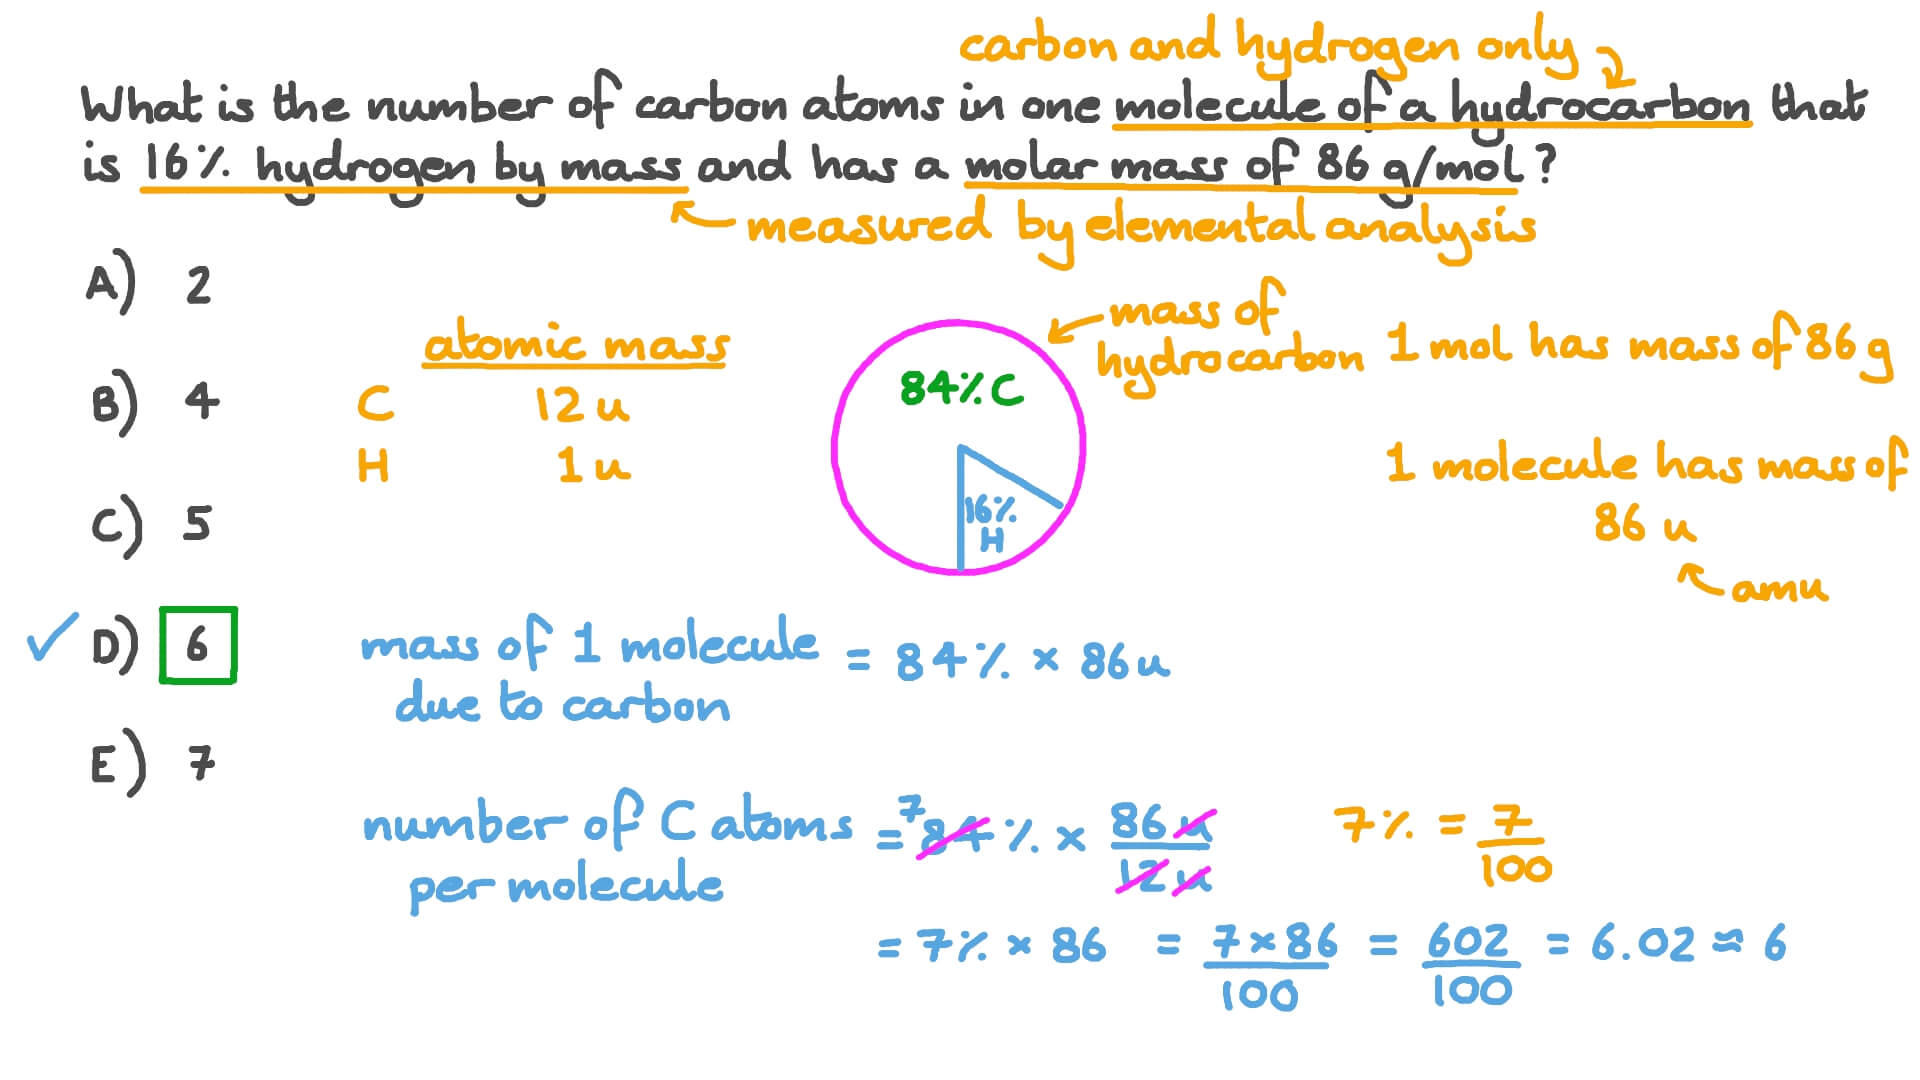 carbon and hydrogen only
What is the number of carbon atoms in one molecule of a hydrocarbon that
is 16% hydrogen by mass and has a molar mass of 86 g/mol?
measured by elemental analysis
A) 2
B) 4
C) 5
D) 6
E) 7
atomic mass
C 12 u
H 1 u
84% C
16%
H
mass of
hydrocarbon
1 mol has mass of 86 g
1 molecule has mass of
86 u
amu
mass of 1 molecule = 84% × 86 u
due to carbon
number of C atoms = 84% × 86 u / 12 u
7
per molecule
7% = 7/100
= 7% × 86 = 7 × 86 / 100 = 602 / 100 = 6.02 ≈ 6